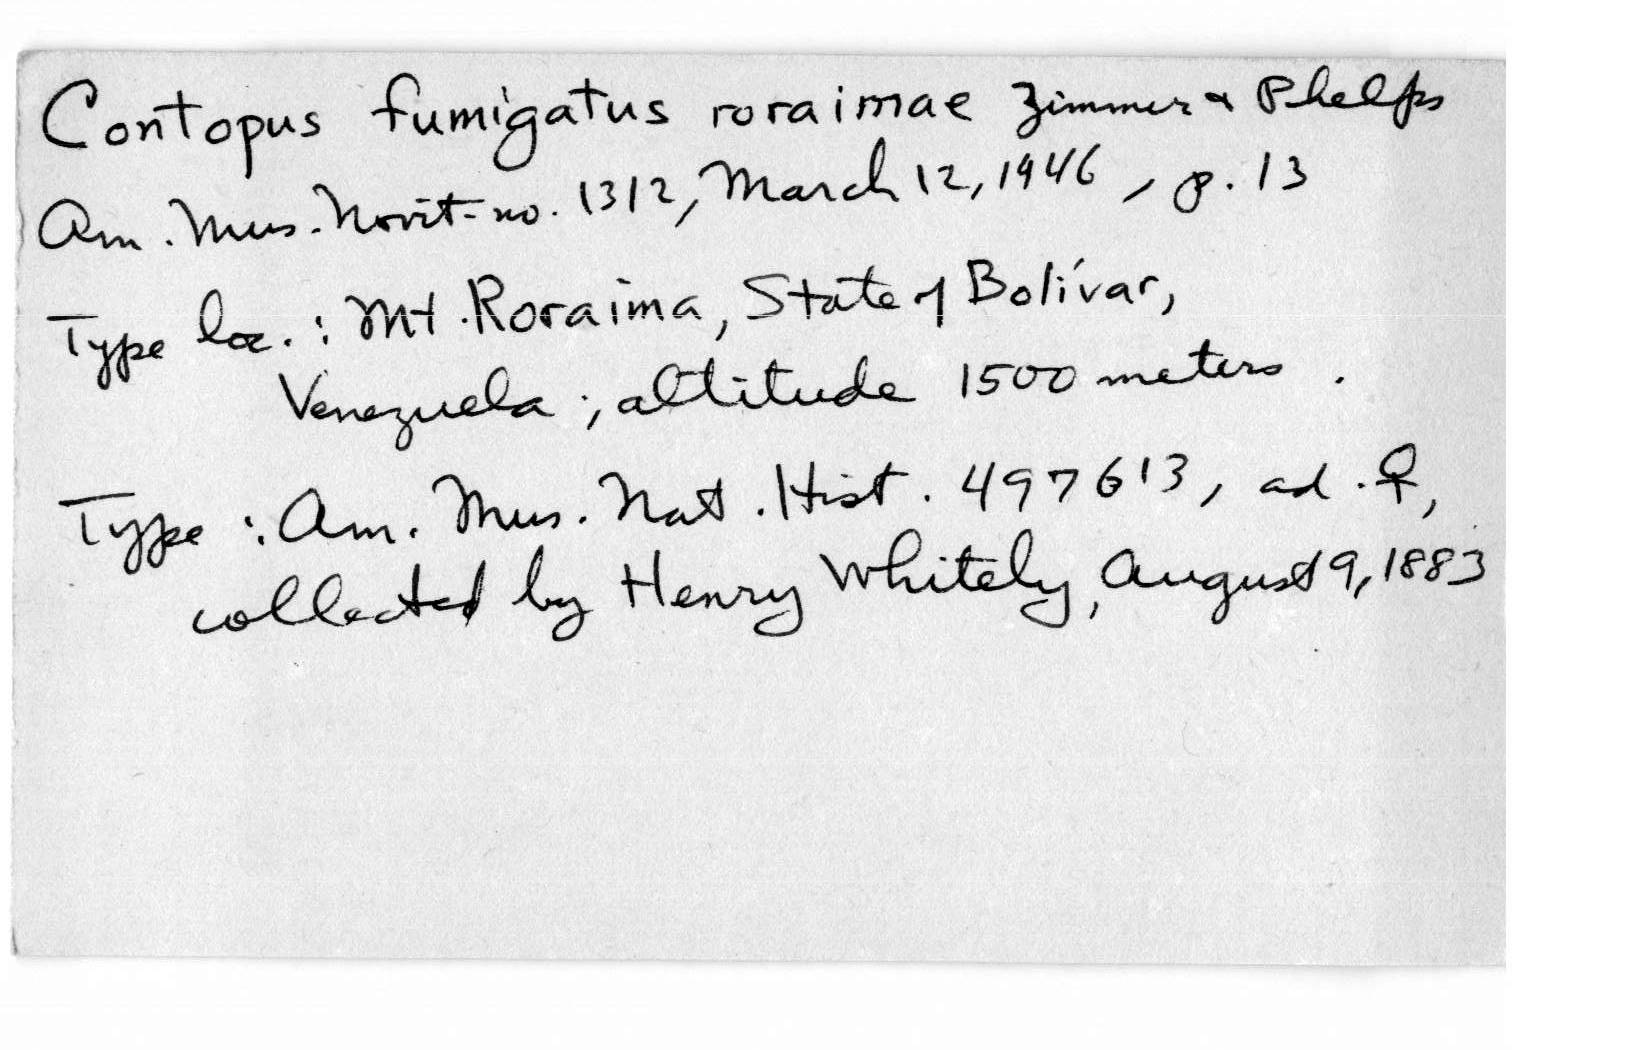 Contopus fumigatus roraimae Zimmer & Phelps
Am. Mus. Novit. no. 1312, March 12, 1946, p. 13
Type loc.: Mt. Roraima, State of Bolívar,
Venezuela; altitude 1500 meters.
Type: Am. Mus. Nat. Hist. 497613, ad. ♀,
collected by Henry Whitely, August 9, 1883